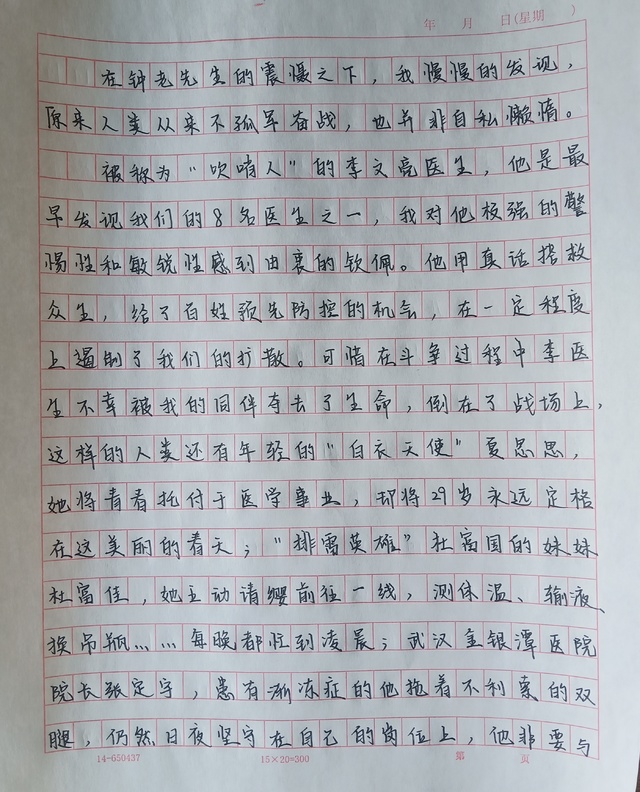 年 月 日(星期 )
在钟老先生的震慑之下，我慢慢的发现，
原来人类从来不孤军奋战，也并非自私懒惰。
被称为“吹哨人”的李文亮医生，他是最
早发现我们的8名医生之一，我对他极强的警
惕性和敏锐性感到由衷的钦佩。他用真话拯救
众生，给了百姓预先防控的机会，在一定程度
上遏制了我们的扩散。可惜在斗争过程中李医
生不幸被我的同伴夺去了生命，倒在了战场上，
这样的人类还有年轻的“白衣天使”夏思思，
她将青春托付于医学事业，却将29岁永远定格
在这美丽的春天；“排雷英雄”杜富国的妹妹
杜富佳，她主动请缨前往一线，测体温、输液、
换吊瓶……每晚都忙到凌晨；武汉金银潭医院
院长张定宇，患有渐冻症的他拖着不利索的双
腿，仍然日夜坚守在自己的岗位上，他非要与
14-650437 15×20=300 第 页